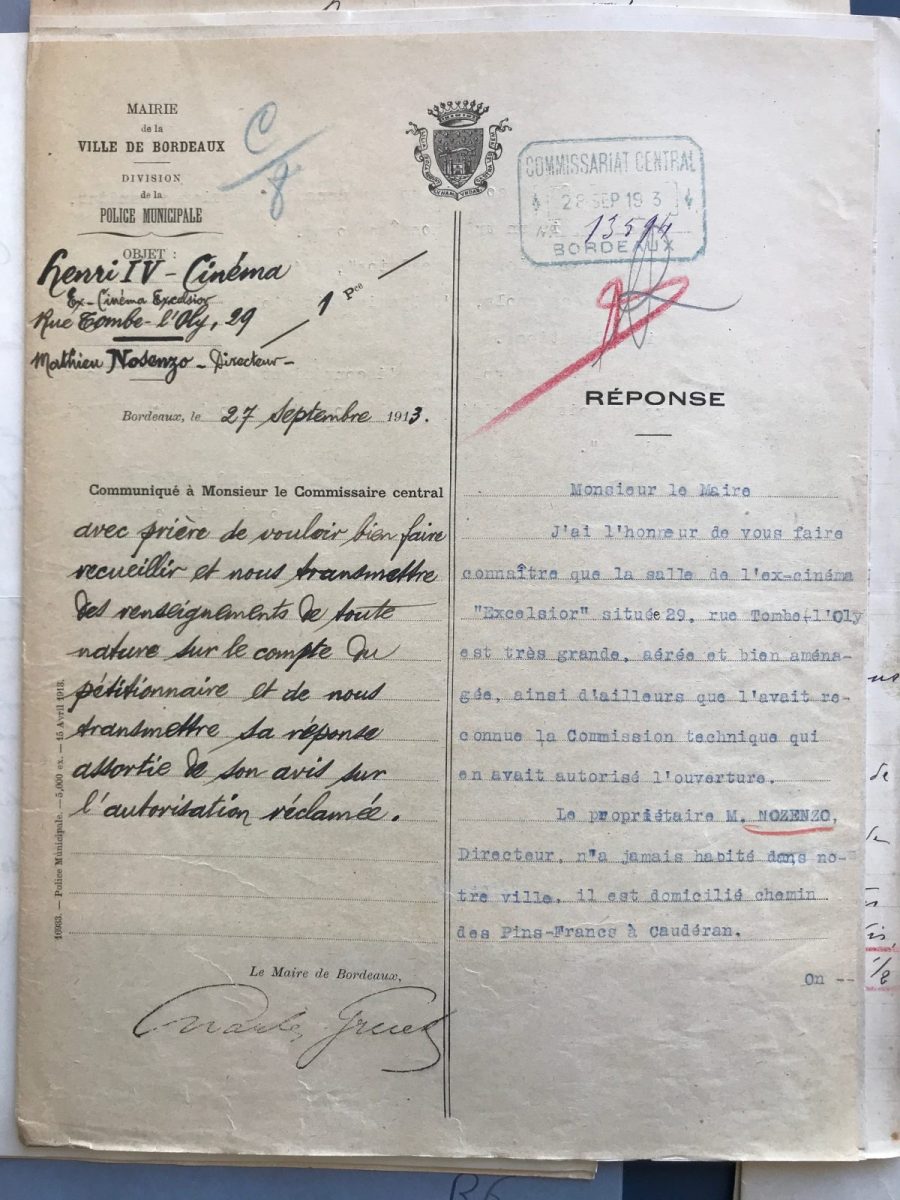 MAIRIE
de la
VILLE DE BORDEAUX
DIVISION
de la
POLICE MUNICIPALE
C/8
OBJET :
Henri IV - Cinéma
Ex-Cinéma Excelsior
Rue Tombe-l'Oly, 29
1 Pce
Mathieu Nosenzo - Directeur -
Bordeaux, le 27 septembre 1913.
Communiqué à Monsieur le Commissaire central
avec prière de vouloir bien faire
recueillir et nous transmettre
des renseignements de toute
nature sur le compte du
pétitionnaire et de nous
transmettre sa réponse
assortie de son avis sur
l'autorisation réclamée.
Le Maire de Bordeaux,
Charles Gruet
16933. — Police Municipale. — 5,000 ex. — 15 Avril 1913.
COMMISSARIAT CENTRAL
4 28 SEP 19 3 4
No 13594
BORDEAUX
RÉPONSE
Monsieur le Maire
J'ai l'honneur de vous faire
connaître que la salle de l'ex-cinéma
"Excelsior" située 29, rue Tombe-l'Oly
est très grande, aérée et bien aména-
gée, ainsi d'ailleurs que l'avait re-
connue la Commission technique qui
en avait autorisé l'ouverture.
Le propriétaire M. NOZENZO,
Directeur, n'a jamais habité dans no-
tre ville, il est domicilié chemin
des Pins-Francs à Caudéran.
On --
de